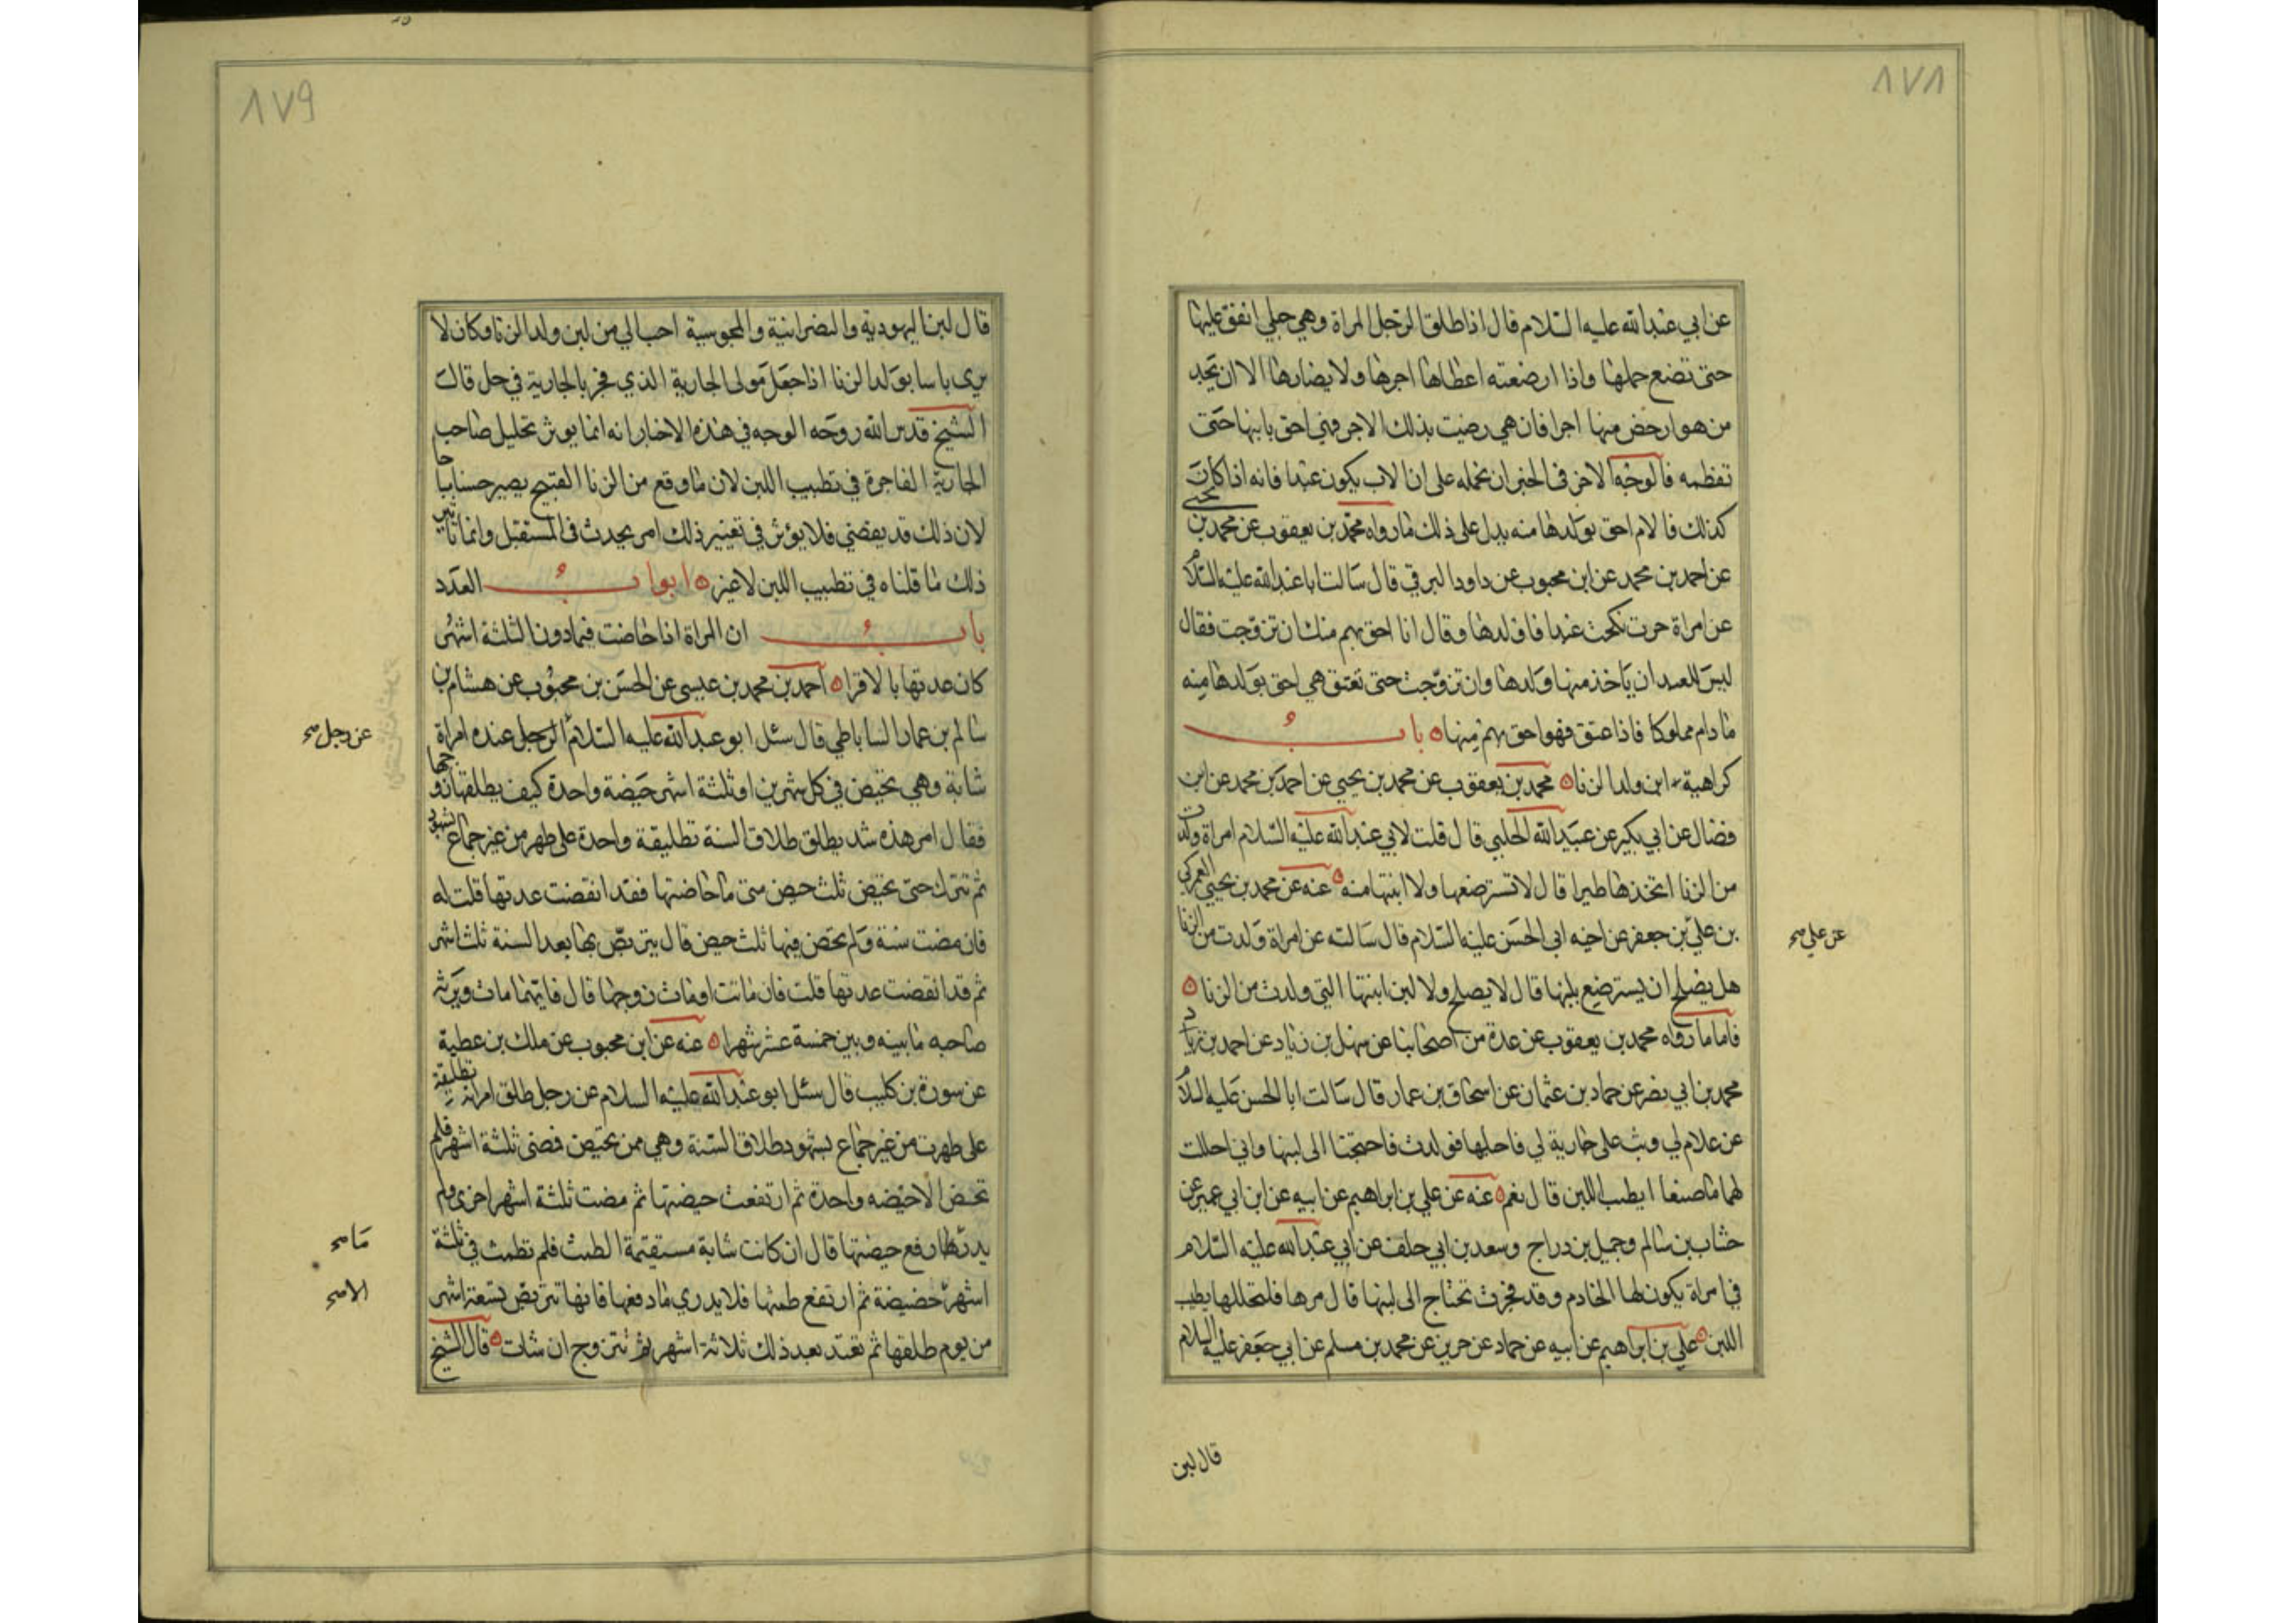 ٨٧٨
عن ابي عبدالله عليه السلام قال اذا طلق الرجل المراة وهي حبلي انفق عليها
حتى تضع حملها واذا ارضعته اعطاها اجرها ولا يضارها الا ان يجد
من هو ارخص منها اجرا فان هي رضيت بذلك الاجر فهي احق بابنها حتى
تفطمه فالوجه الاخر فى الخبر ان نحمله على ان الاب يكون عبدا فانه اذا كان
كذلك فالام احق بولدها منه يدل على ذلك ما رواه محمد بن يعقوب عن محمد بن يحيى
عن احمد بن محمد عن ابن محبوب عن داود الرقي قال سالت ابا عبدالله عليه السلام
عن امراة حرت نكحت عبدا فاولدها وقال انا احق بهم منك ان تزوجت فقال
ليس للعبد ان ياخذ منها ولدها وان تزوجت حتى تعتق هي احق بولدها منه
ما دام مملوكا فاذا عتق فهو احق بهم منها باب
كراهية لبن ولد الزنا محمد بن يعقوب عن محمد بن يحيى عن احمد بن محمد عن ابن
فضال عن ابي بكير عن عبيدالله الحلبي قال قلت لابي عبدالله عليه السلام امراة ولدت
من الزنا اتخذها طيرا قال لا تسترضعها ولا ابنتها منه عنه عن محمد بن يحيى العمركي
بن علي بن جعفر عن اخيه ابي الحسن عليه السلام قال سالته عن امراة ولدت من الزنا
عن علي صح
هل يصلح ان يسترضع بلبنها قال لا يصلح ولا لبن ابنتها التي ولدت من الزنا
فاما ما رواه محمد بن يعقوب عن عدة من اصحابنا عن سهل بن زياد عن احمد بن زياد
محمد بن ابي نصر عن حماد بن عثمان عن اسحاق بن عمار قال سالت ابا الحسن عليه السلام
عن غلام لي وثب على جارية لي فاحبلها فولدت فاحتجنا الى لبنها واني احللت
لهما ما صنعا ايطيب اللبن قال نعم عنه عن علي بن ابراهيم عن ابيه عن ابن ابي عمير عن
هشاب بن سالم وجميل بن دراج وسعد بن ابي خلف عن ابي عبدالله عليه السلام
في امراة يكون لها الخادم وقد فجرت تحتاج الى لبنها قال مرها فلتحللها يطيب
اللبن علي بن ابراهيم عن ابيه عن حماد عن حريز عن محمد بن مسلم عن ابي جعفر عليه السلام
قال لبن
٨٧٩
قال لبن اليهودية والنصرانية والمجوسية احب الي من لبن ولد الزنا وكان لا
يرى باسا بولد الزنا اذا جعل مولى الجارية الذي فجر بالجارية في حل قال
الشيخ قدس الله روحه الوجه في هذه الاخبار انه انما يوثر تحليل صاحب
الجارية الفاجرة في تطييب اللبن لان ما وقع من الزنا القبيح يصير حسنا
لان ذلك قد يقضي فلا يؤثر في تغيير ذلك امر يحدث فى المستقبل وانما تاثير
ذلك ما قلناه في تطييب اللبن لا غير ابواب العدد
باب ان المراة اذا حاضت فيما دون الثلثة اشهر
كان عدتها بالاقراء احمد بن محمد بن عيسى عن الحسن بن محبوب عن هشام بن
سالم بن عمار الساباطي قال سئل ابو عبدالله عليه السلام الرجل عنده امراة
عن رجل صح
شابة وهي تحيض في كل شهرين او ثلثة اشهر حيضة واحدة كيف يطلقها زوجها
فقال امر هذه شديد يطلق طلاق السنة تطليقة واحدة على طهر من غير جماع بشهود
ثم تترك حتى تحيض ثلث حيض متى ما حاضتها فقد انقضت عدتها قلت له
فان مضت سنة ولم تحض فيها ثلث حيض قال يتربص بها بعد السنة ثلث اشهر
ثم قد انقضت عدتها قلت فان ماتت او مات زوجها قال فايهما مات ورثه
صاحبه ما بينه وبين خمسة عشر شهرا عنه عن ابن محبوب عن ملك بن عطية
عن سورة بن كليب قال سئل ابو عبدالله عليه السلام عن رجل طلق امراته تطليقة
على طهر من غير جماع بشهود طلاق السنة وهي ممن تحيض فمضى ثلثة اشهر فلم
تحض الا حيضه واحدة ثم ارتفعت حيضتها ثم مضت ثلثة اشهر اخرى ولم
يدر ما رفع حيضتها قال ان كانت شابة مستقيمة الطمث فلم تطمث في ثلثة
ما صح
اشهر حضيضة ثم ارتفع طمثها فلا يدري ما رفعها فانها تتربص تسعة اشهر
الا صح
من يوم طلقها ثم تعتد بعد ذلك ثلاثة اشهر ثم تتزوج ان شات قال الشيخ